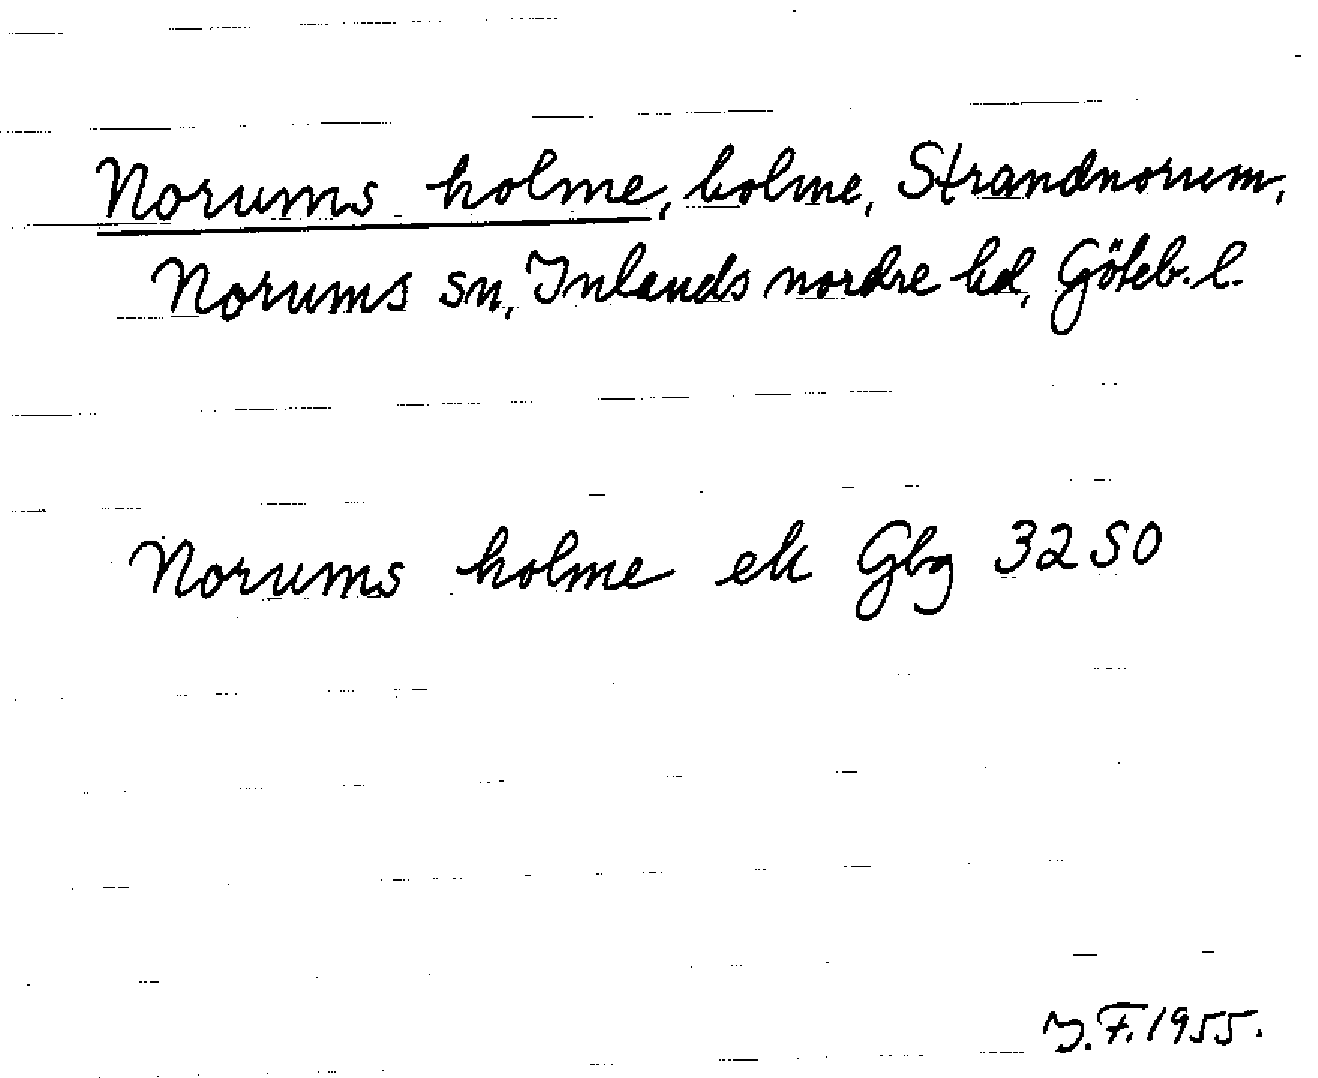 Norums holme, holme, Strandnorum,
Norums sn, Inlands nordre hd, Göteb. l.
Norums holme ek Gbg 3250
J.F. 1955.